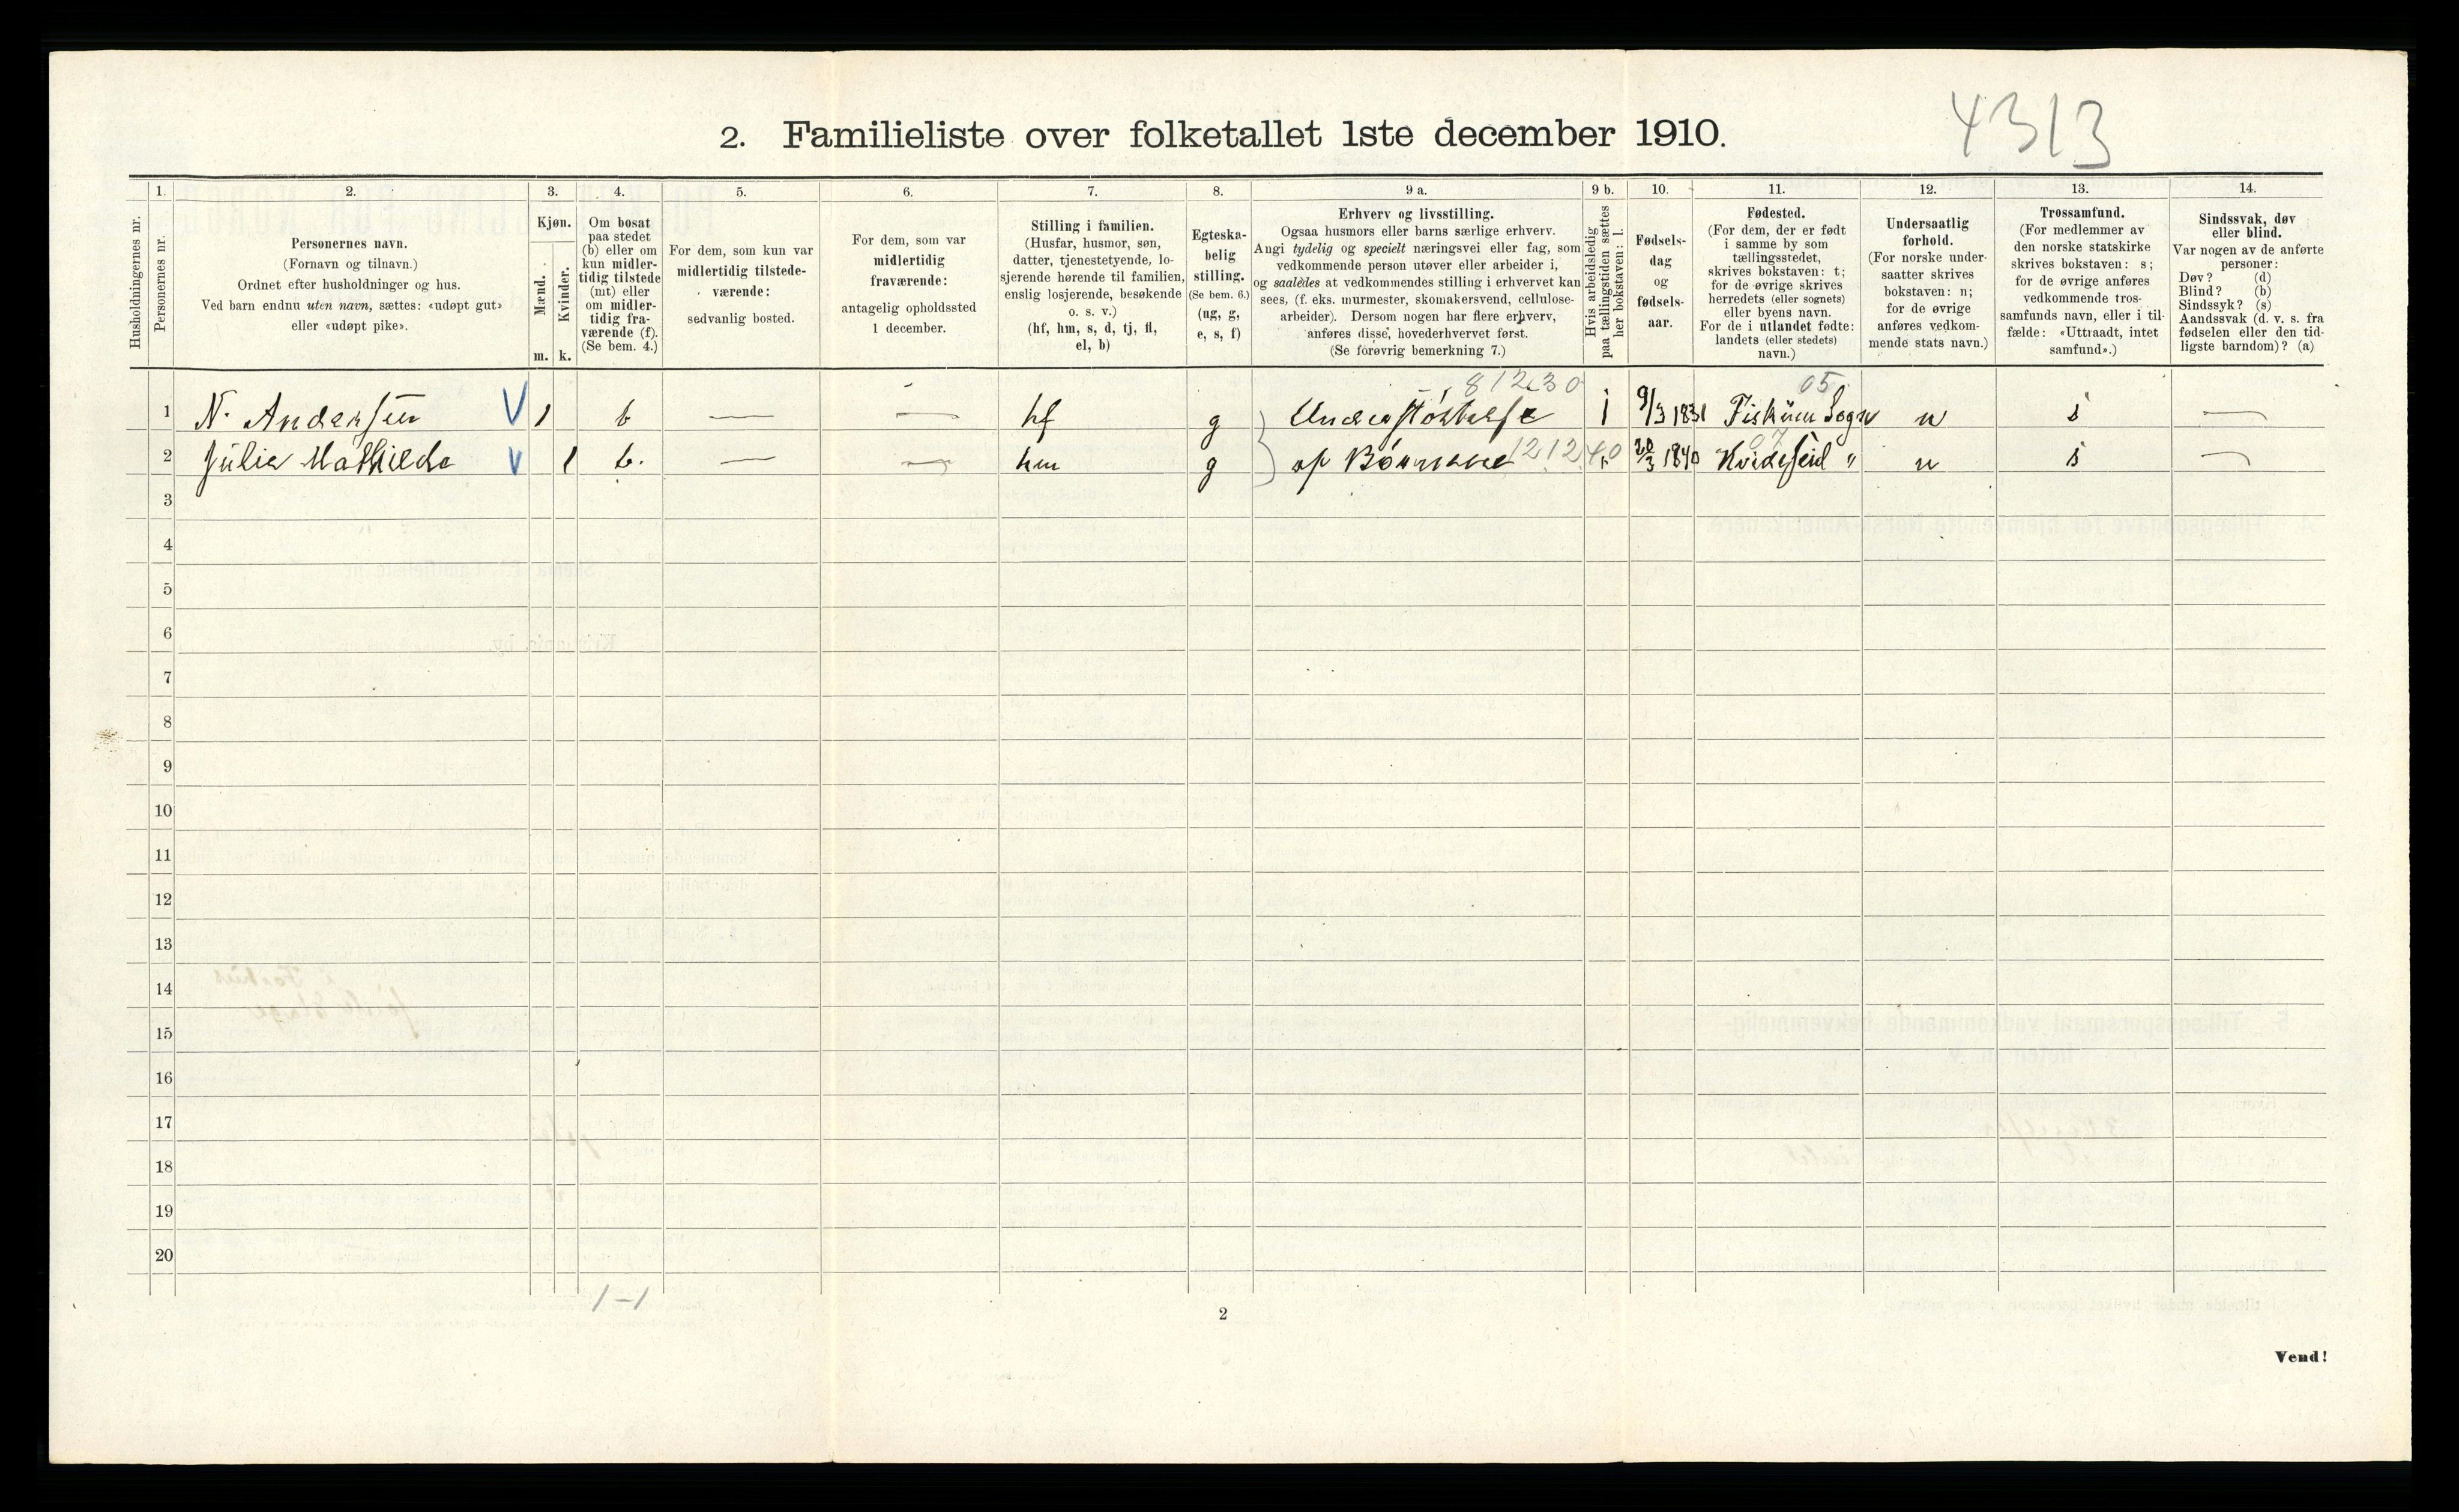 4313
2. Familieliste over folketallet 1ste december 1910.
1. 2. 3. 4. 5. 6. 7. 8. 9 a. 9 b. 10. 11. 12. 13. 14.
Husholdningernes nr.
Personernes nr.
Personernes navn.
(Fornavn og tilnavn.)
Ordnet efter husholdninger og hus.
Ved barn endnu uten navn, sættes: «udøpt gut»
eller «udøpt pike».
Kjøn.
Mænd.
Kvinder.
m. k.
Om bosat
paa stedet
(b) eller om
kun midler-
tidig tilstede
(mt) eller
om midler-
tidig fra-
værende (f).
(Se bem. 4.)
For dem, som kun var
midlertidig tilstede-
værende:
sedvanlig bosted.
For dem, som var
midlertidig
fraværende:
antagelig opholdssted
1 december.
Stilling i familien.
(Husfar, husmor, søn,
datter, tjenestetyende, lo-
sjerende hørende til familien,
enslig losjerende, besøkende
o. s. v.)
(hf, hm, s, d, tj, fl,
el, b)
Egteska-
belig
stilling.
(Se bem. 6.)
(ug, g,
e, s, f)
Erhverv og livsstilling.
Ogsaa husmors eller barns særlige erhverv.
Angi tydelig og specielt næringsvei eller fag, som
vedkommende person utøver eller arbeider i,
og saaledes at vedkommendes stilling i erhvervet kan
sees, (f. eks. murmester, skomakersvend, cellulose-
arbeider). Dersom nogen har flere erhverv,
anføres disse, hovederhvervet først.
(Se forøvrig bemerkning 7.)
Hvis arbeidsledig
paa tællingstiden sættes
her bokstaven: l.
Fødsels-
dag
og
fødsels-
aar.
Fødested.
(For dem, der er født
i samme by som
tællingsstedet,
skrives bokstaven: t;
for de øvrige skrives
herredets (eller sognets)
eller byens navn.
For de i utlandet fødte:
landets (eller stedets)
navn.)
Undersaatlig
forhold.
(For norske under-
saatter skrives
bokstaven: n;
for de øvrige
anføres vedkom-
mende stats navn.)
Trossamfund.
(For medlemmer av
den norske statskirke
skrives bokstaven: s;
for de øvrige anføres
vedkommende tros-
samfunds navn, eller i til-
fælde: «Uttraadt, intet
samfund».)
Sindssvak, døv
eller blind.
Var nogen av de anførte
personer:
Døv? (d)
Blind? (b)
Sindssyk? (s)
Aandssvak (d. v. s. fra
fødselen eller den tid-
ligste barndom)? (a)
81230 05
1 N. Andersen V 1 b — — hf g Understøttelse 9/3 1831 Fiskum Sogn n s —
1212.40 07
2 Julie Mathilde V 1 b. — — hm g af Børnene 20/3 1840 Kvideseid " n s —
3
4
5
6
7
8
9
10
11
12
13
14
15
16
17
18
19
20
1-1
2
Vend!